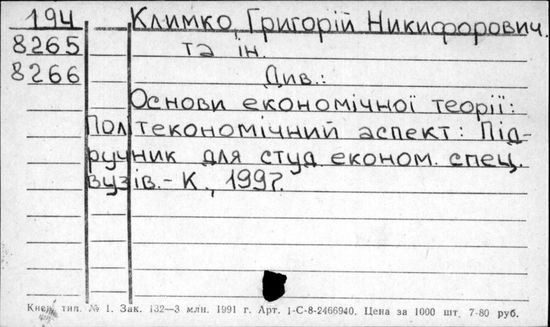 194 Климко, Григорій Никифорович.
8265 та ін.
8266 Див.:
Основи економічної теорії:
Політекономічний аспект: Під-
ручник для студ. економ. спец.
вузів. – К., 1997.
тип. № 1. Зак. 132—3 млн. 1991 г. Арт. 1-С-8-2466940. Цена за 1000 шт. 7-80 руб.